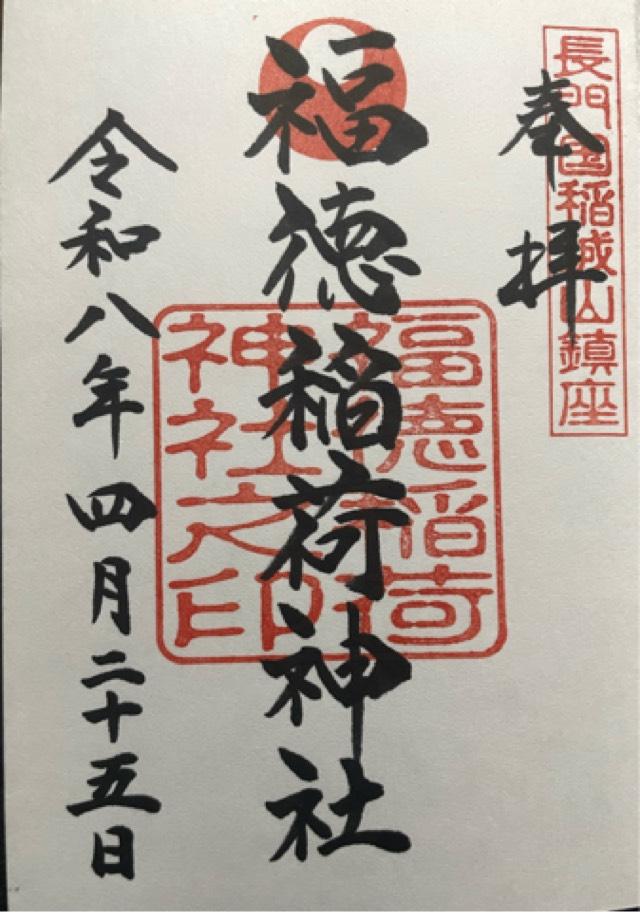 長門国稲城山鎮座
奉拝
福徳稲荷神社
福徳稲荷
神社之印
令和八年四月二十五日